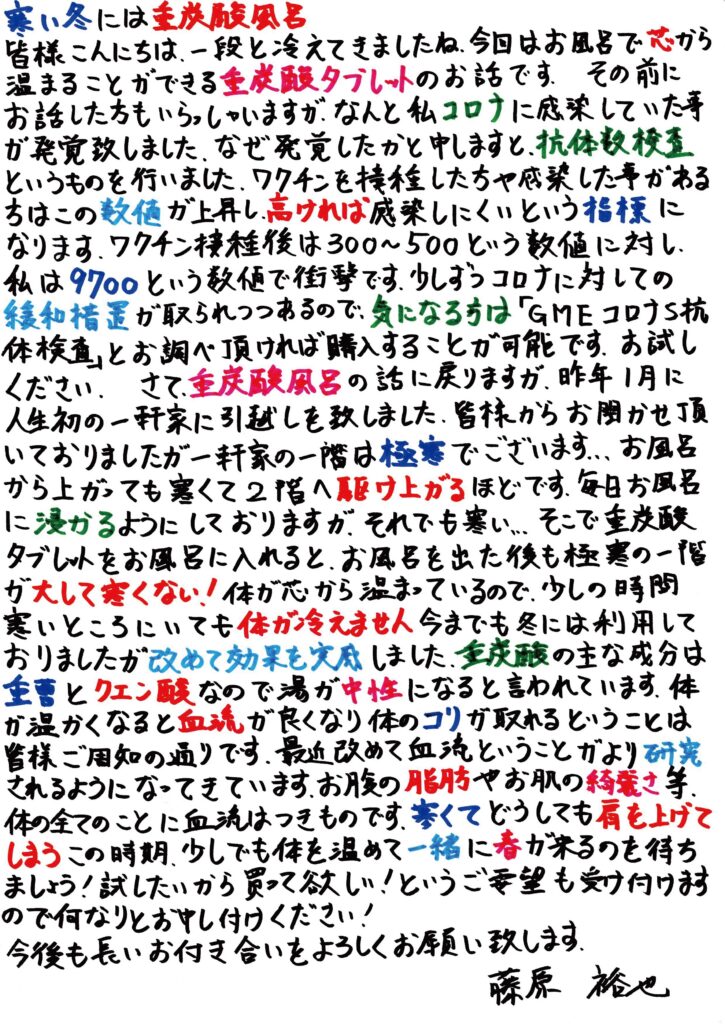 寒い冬には重炭酸風呂
皆様こんにちは、一段と冷えてきましたね、今回はお風呂で芯から
温まることができる重炭酸タブレットのお話です。 その前に
お話した方もいらっしゃいますが、なんと私コロナに感染していた事
が発覚致しました、なぜ発覚したかと申しますと、抗体数検査
というものを行いました、ワクチンを接種した方や感染した事がある
方はこの数値が上昇し、高ければ感染しにくいという指標に
なります、ワクチン接種後は300～500という数値に対し、
私は9700という数値で衝撃です、少しずつコロナに対しての
緩和措置が取られつつあるので、気になる方は「GMEコロナS抗
体検査」とお調べ頂ければ購入することが可能です、お試し
ください、 さて、重炭酸風呂の話に戻りますが、昨年1月に
人生初の一軒家に引越しを致しました、皆様からお聞かせ頂
いておりましたが一軒家の一階は極寒でございます、、、お風呂
から上がっても寒くて2階へ駆け上がるほどです、毎日お風呂
に浸かるようにしておりますが、それでも寒い、、、そこで重炭酸
タブレットをお風呂に入れると、お風呂を出た後も極寒の一階
が大して寒くない！体が芯から温まっているので、少しの時間
寒いところにいても体が冷えません今までも冬には利用して
おりましたが改めて効果を実感しました、重炭酸の主な成分は
重曹とクエン酸なので湯が中性になると言われています、体
が温かくなると血流が良くなり体のコリが取れるということは
皆様ご周知の通りです、最近改めて血流ということがより研究
されるようになってきています、お腹の脂肪やお肌の綺麗さ等、
体の全てのことに血流はつきものです、寒くてどうしても肩を上げて
しまうこの時期、少しでも体を温めて一緒に春が来るのを待ち
ましょう！試したいから買って欲しい！というご要望も受け付けます
ので何なりとお申し付けください！
今後も長いお付き合いをよろしくお願い致します、
藤原 裕也